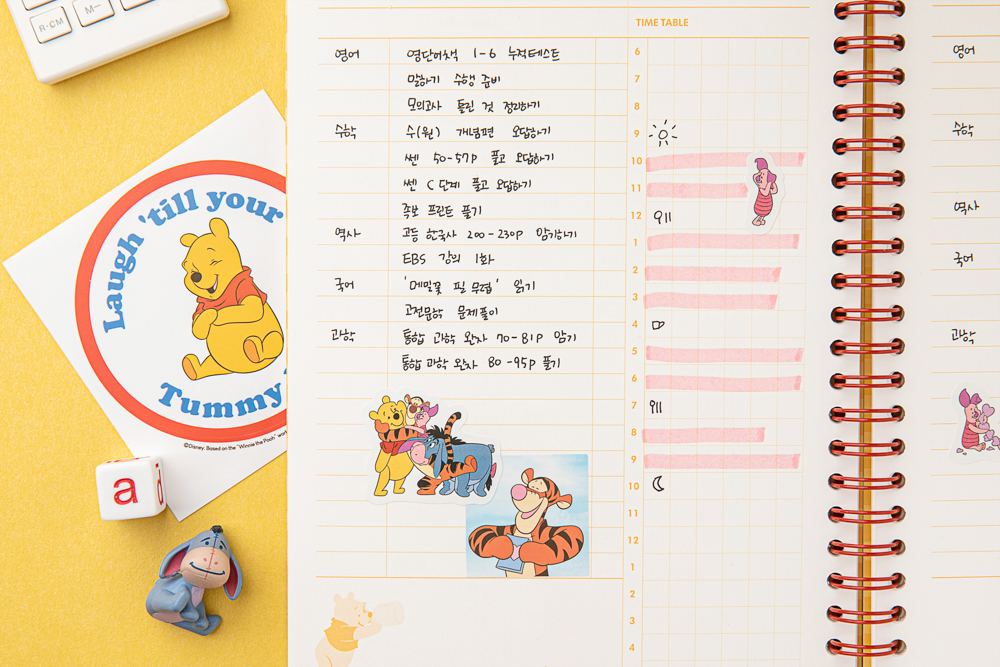 R·CM
M-
Laugh 'till your
Tummy
©Disney. Based on the "Winnie the Pooh" work
a
TIME TABLE
영어 영단어책 1-6 누적테스트
말하기 수행 준비
모의고사 틀린 것 정리하기
수학 수(원) 개념편 오답하기
쎈 50-57p 풀고 오답하기
쎈 C단계 풀고 오답하기
족보 프린트 풀기
역사 고등 한국사 200-230p 암기하기
EBS 강의 1화
국어 '메밀꽃 필 무렵' 읽기
고전문학 문제풀이
과학 통합 과학 완자 70-81p 암기
통합 과학 완자 80-95p 풀기
6
7
8
9
10
11
12
1
2
3
4
5
6
7
8
9
10
11
12
1
2
3
4
영어
수학
역사
국어
과학